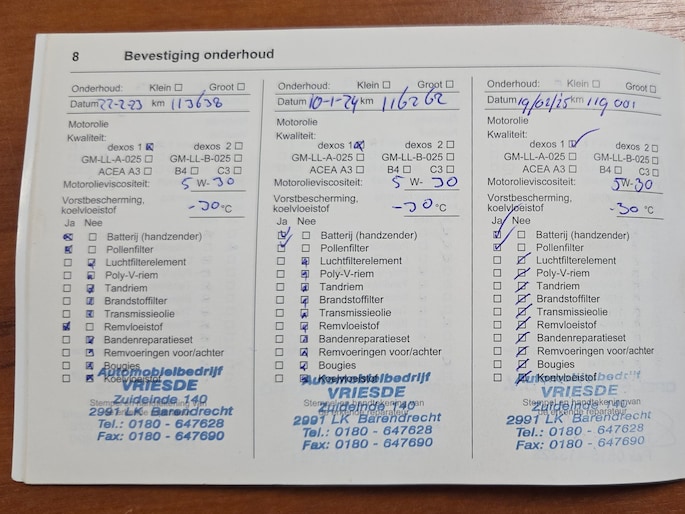 8 Bevestiging onderhoud
Onderhoud: Klein Groot
Datum 22-2-23 km 113638
Motorolie
Kwaliteit:
dexos 1 dexos 2
GM-LL-A-025 GM-LL-B-025
ACEA A3 B4 C3
Motorolieviscositeit: 5 W- 30
Vorstbescherming,
koelvloeistof -30 °C
Ja Nee
Batterij (handzender)
Pollenfilter
Luchtfilterelement
Poly-V-riem
Tandriem
Brandstoffilter
Transmissieolie
Remvloeistof
Bandenreparatieset
Remvoeringen voor/achter
Bougies
Koelvloeistof
Stempel en handtekening van
de erkende reparateur
Automobielbedrijf
VRIESDE
Zuideinde 140
2991 LK Barendrecht
Tel.: 0180 - 647628
Fax: 0180 - 647690
Onderhoud: Klein Groot
Datum 10-1-24 km 116262
Motorolie
Kwaliteit:
dexos 1 dexos 2
GM-LL-A-025 GM-LL-B-025
ACEA A3 B4 C3
Motorolieviscositeit: 5 W- 30
Vorstbescherming,
koelvloeistof -30 °C
Ja Nee
Batterij (handzender)
Pollenfilter
Luchtfilterelement
Poly-V-riem
Tandriem
Brandstoffilter
Transmissieolie
Remvloeistof
Bandenreparatieset
Remvoeringen voor/achter
Bougies
Koelvloeistof
Stempel en handtekening van
de erkende reparateur
Automobielbedrijf
VRIESDE
Zuideinde
2991 LK Barendrecht
Tel.: 0180 - 647628
Fax: 0180 - 647690
Onderhoud: Klein Groot
Datum 19/02/25 km 119001
Motorolie
Kwaliteit:
dexos 1 dexos 2
GM-LL-A-025 GM-LL-B-025
ACEA A3 B4 C3
Motorolieviscositeit: 5W-30
Vorstbescherming,
koelvloeistof -30 °C
Ja Nee
Batterij (handzender)
Pollenfilter
Luchtfilterelement
Poly-V-riem
Tandriem
Brandstoffilter
Transmissieolie
Remvloeistof
Bandenreparatieset
Remvoeringen voor/achter
Bougies
Koelvloeistof
Stempel en handtekening van
de erkende reparateur
Automobielbedrijf
VRIESDE
Zuideinde 140
2991 LK Barendrecht
Tel.: 0180 - 647628
Fax: 0180 - 647690